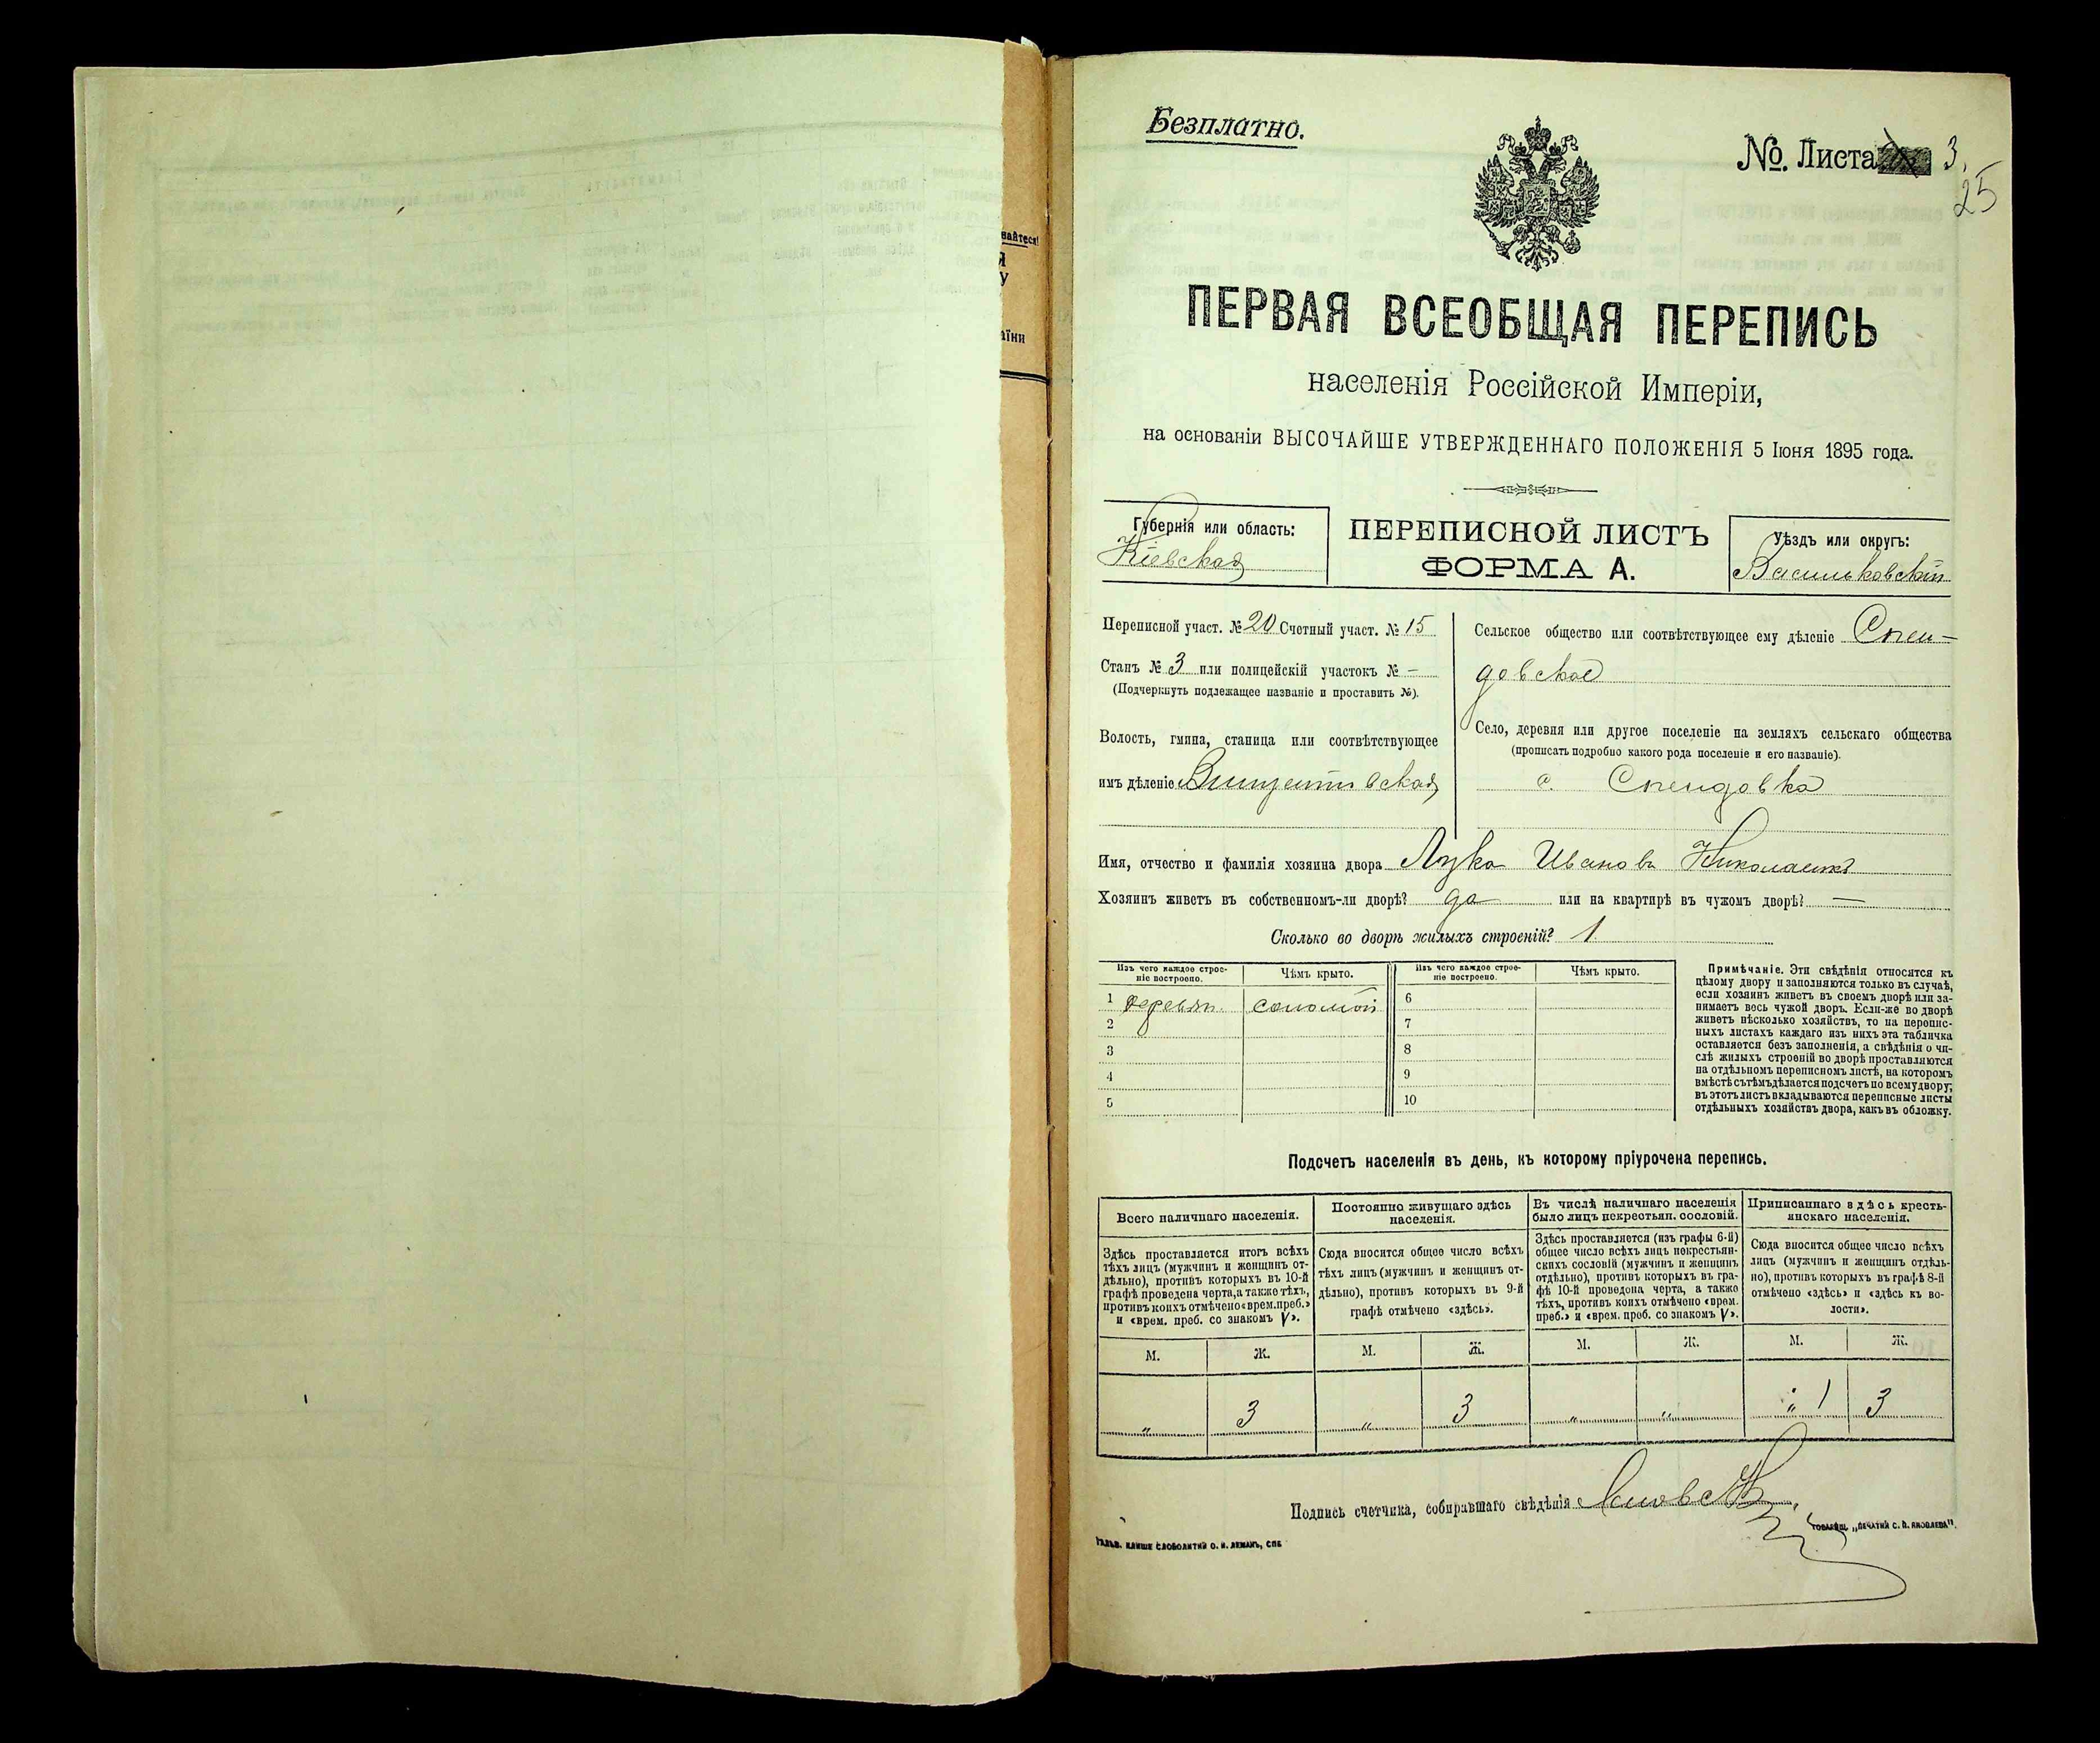 Безплатно.
№. Листа 3.
25
вайтеся!
Я
У
аїни
ПЕРВАЯ ВСЕОБЩАЯ ПЕРЕПИСЬ
населенія Россійской Имперіи,
на основаніи ВЫСОЧАЙШЕ УТВЕРЖДЕННАГО ПОЛОЖЕНІЯ 5 Іюня 1895 года.
Губернія или область:
Кіевская
ПЕРЕПИСНОЙ ЛИСТЪ
ФОРМА А.
Уѣздъ или округъ:
Васильковскій
Переписной участ. № 20 Счетный участ. № 15
Станъ № 3 или полицейскій участокъ № —
(Подчеркнуть подлежащее названіе и проставить №).
Волость, гмина, станица или соотвѣтствующее
имъ дѣленіе Винцентовская
Сельское общество или соотвѣтствующее ему дѣленіе Спен-
довское
Село, деревня или другое поселеніе на земляхъ сельскаго общества
(прописать подробно какого рода поселеніе и его названіе).
с. Спендовка
Имя, отчество и фамилія хозяина двора Лука Ивановъ
Хозяинъ живетъ въ собственномъ-ли дворѣ? да или на квартирѣ въ чужомъ дворѣ? —
Сколько во дворѣ жилыхъ строеній? 1
Изъ чего каждое строе-
ніе построено.
Чѣмъ крыто.
Изъ чего каждое строе-
ніе построено.
Чѣмъ крыто.
1 деревян. соломой 6
2 7
3 8
4 9
5 10
Примѣчаніе. Эти свѣдѣнія относятся къ
цѣлому двору и заполняются только въ случаѣ,
если хозяинъ живетъ въ своемъ дворѣ или за-
нимаетъ весь чужой дворъ. Если-же во дворѣ
живетъ нѣсколько хозяйствъ, то на перепис-
ныхъ листахъ каждаго изъ нихъ эта табличка
оставляется безъ заполненія, а свѣдѣнія о чи-
слѣ жилыхъ строеній во дворѣ проставляются
на отдѣльномъ переписномъ листѣ, на которомъ
вмѣстѣ съ тѣмъ дѣлается подсчетъ по всему двору;
въ этотъ листъ вкладываются переписные листы
отдѣльныхъ хозяйствъ двора, какъ въ обложку.
Подсчетъ населенія въ день, къ которому пріурочена перепись.
Всего наличнаго населенія.
Постоянно живущаго здѣсь
населенія.
Въ числѣ наличнаго населенія
было лицъ некрестьян. сословій.
Приписаннаго здѣсь кресть-
янскаго населенія.
Здѣсь проставляется итогъ всѣхъ
тѣхъ лицъ (мужчинъ и женщинъ от-
дѣльно), противъ которыхъ въ 10-й
графѣ проведена черта, а также тѣхъ,
противъ коихъ отмѣчено «врем. преб.»
и «врем. преб. со знакомъ V».
Сюда вносится общее число всѣхъ
тѣхъ лицъ (мужчинъ и женщинъ от-
дѣльно), противъ которыхъ въ 9-й
графѣ отмѣчено «здѣсь».
Здѣсь проставляется (изъ графы 6-й)
общее число всѣхъ лицъ некрестьян-
скихъ сословій (мужчинъ и женщинъ
отдѣльно), противъ которыхъ въ гра-
фѣ 10-й проведена черта, а также
тѣхъ, противъ коихъ отмѣчено «врем.
преб.» и «врем. преб. со знакомъ V».
Сюда вносится общее число всѣхъ
лицъ (мужчинъ и женщинъ отдѣль-
но), противъ которыхъ въ графѣ 8-й
отмѣчено «здѣсь» и «здѣсь къ во-
лости».
М. Ж. М. Ж. М. Ж. М. Ж.
„ 3 „ 3 „ „ „ 1 3
Подпись счетчика, собиравшаго свѣдѣнія
ГАЛЬВ. КЛИШЕ СЛОВОЛИТНИ О. И. ЛЕМАНЪ, СПБ
ТОВАРИЩ. „ПЕЧАТНИ С. П. ЯКОВЛЕВА".